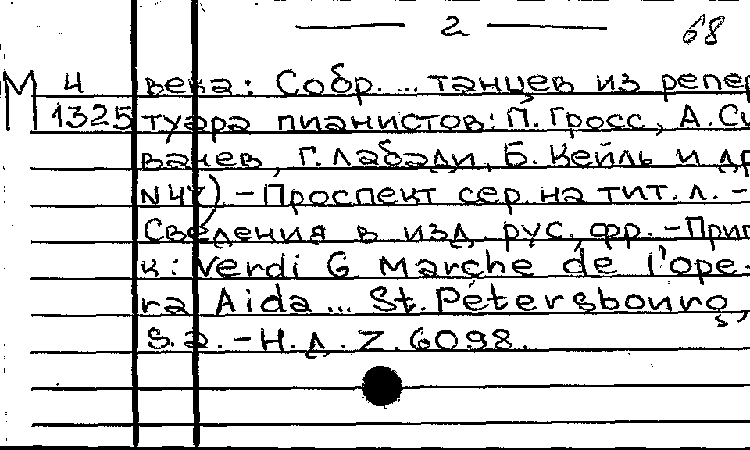 — 2 — 68
М 4 века: Собр. ... танцев из репер
1325 туара пианистов: П. Гросс, А. Си
ванев, Г. Лабади, Б. Кейль и др
N 47). – Проспект сер. на тит. л. –
Сведения в изд. рус. фр. – Прип
к: Verdi G Marche de l'ope-
ra Aida ... St. Pétersbourg,
s. a. – Н. д. Z. 6098.